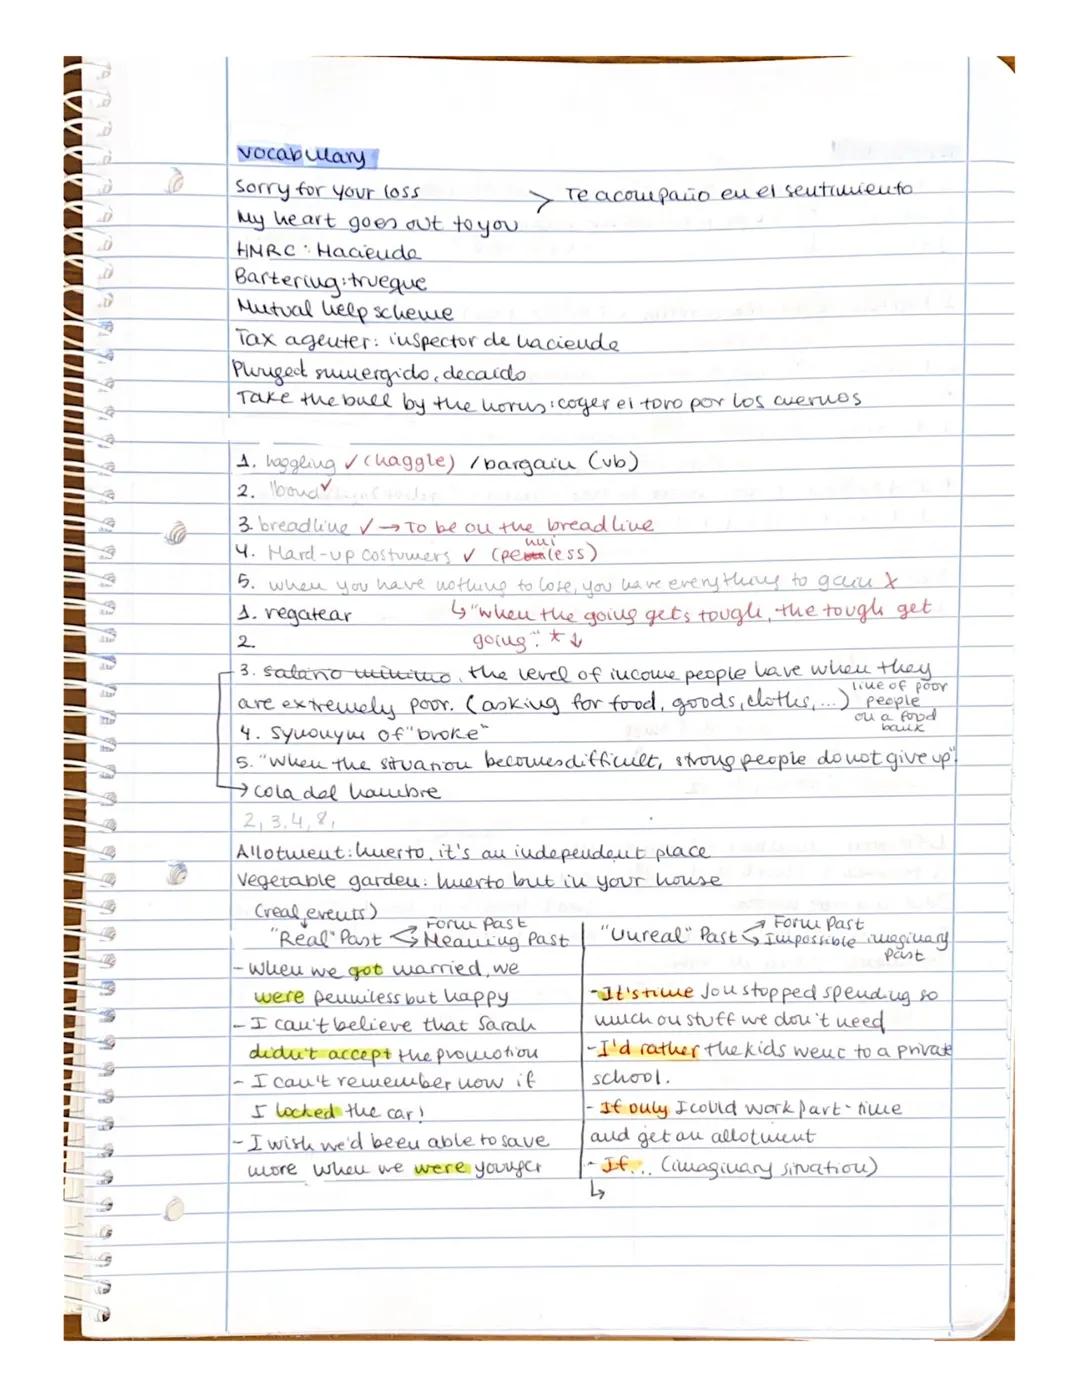 vocabulary
Sorry for your loss > Te acompaño en el sentimiento
My heart goes out to you
HMRC: Hacienda
Bartering: trueque
Mutual help scheme
Tax agenter: inspector de hacienda
Plunged sumergido, decaído
Take the bull by the horns: coger el toro por los cuernos
1. haggling ✓ (haggle) / bargain (vb)
2. "bond" ✓
3. breadline ✓ → To be on the breadline
4. Hard-up costumers ✓ (penniless)
5. when you have nothing to lose, you have everything to gain X
1. regatear ↳ "when the going gets tough, the tough get
2. going". * ↓
3. salario mínimo, the level of income people have when they
are extremely poor. (asking for food, goods, cloths, ...) line of poor people on a food bank
4. Synonym of "broke"
5. "When the situation becomes difficult, strong people do not give up".
→ cola del hambre
2, 3, 4, 8,
Allotment: huerto, it's an independent place
Vegetable garden: huerto but in your house
(real events)
"Real" Past Form Past Meaning Past
- When we got married, we
were penniless but happy
- I can't believe that Sarah
didn't accept the promotion
- I can't remember now if
I locked the car!
- I wish we'd been able to save
more when we were younger
"Unreal" Past → Form Past
Impossible imaginary past
- It's time you stopped spending so
much on stuff we don't need
- I'd rather the kids went to a private
school.
- If only I could work part-time
and get an allotment
- If... (imaginary situation)
↳